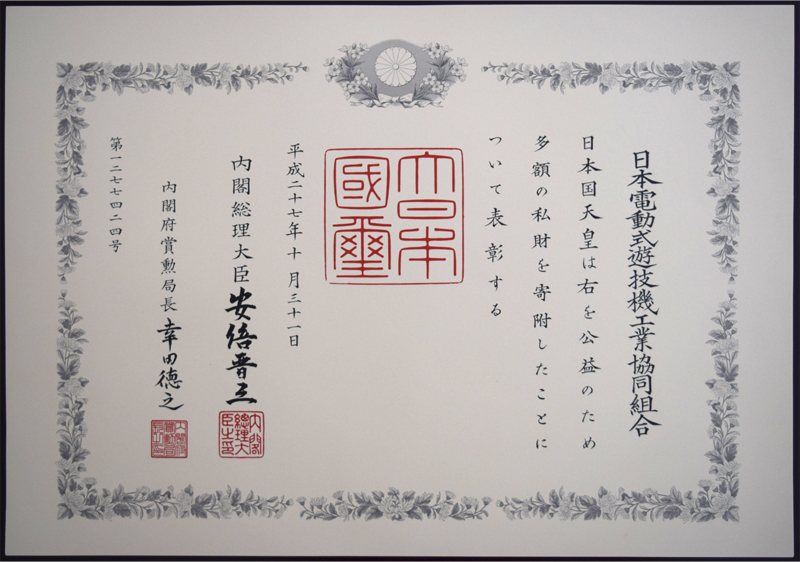 日本電動式遊技機工業協同組合
日本国天皇は右を公益のため
多額の私財を寄附したことに
ついて表彰する
大日本國璽
平成二十七年十月三十一日
内閣総理大臣 安倍晋三
内閣總理大臣之印
内閣府賞勲局長 幸田徳之
第一二七七四二四号